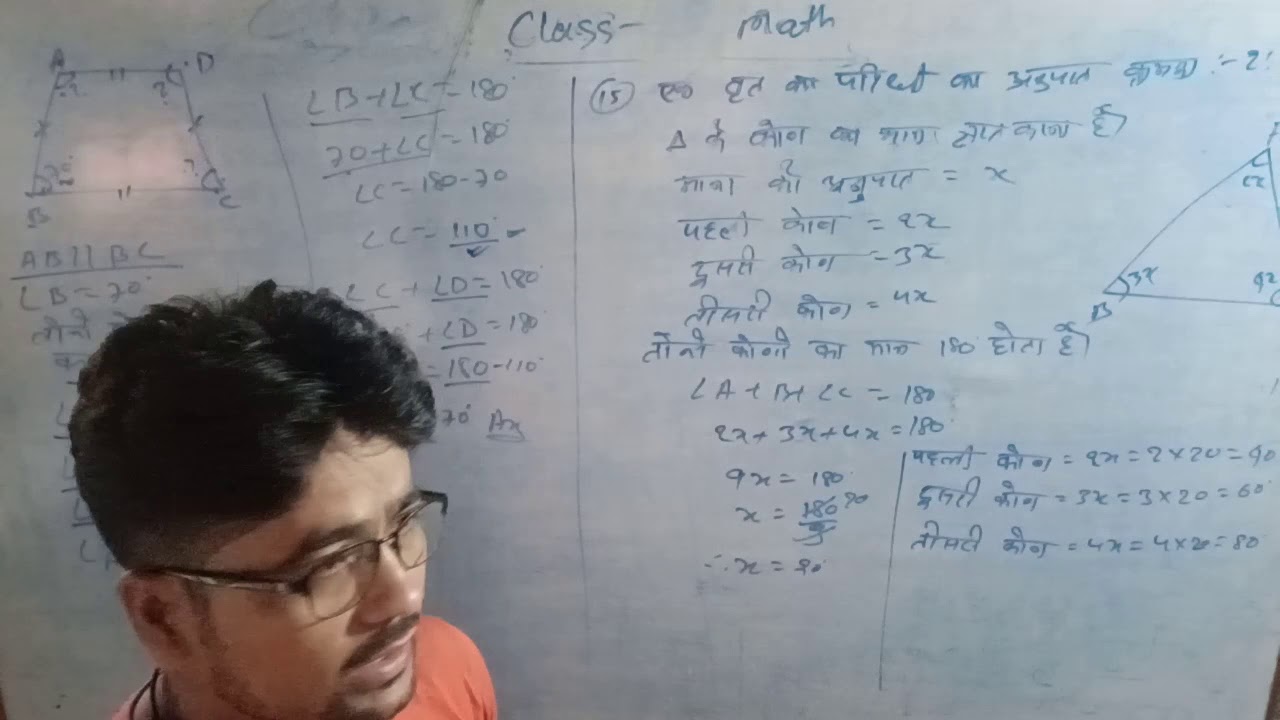 Class- Math
A
D
?
?
70°
?
B
C
AB || BC
∠B = 70°
∠B + ∠C = 180°
70 + ∠C = 180°
∠C = 180 - 70
∠C = 110°
∠C + ∠D = 180°
+ ∠D = 180°
= 180 - 110°
70° Ans
(15) एक वृत का परिधी का अनुपात क्रमशः :- 2:
Δ के कोण का मान ज्ञात करना है।
माना की अनुपात = x
पहली कोण = 2x
दुसरी कोण = 3x
तीसरी कोण = 4x
तीनो कोणो का मान 180° होता है।
∠A + B + ∠C = 180
2x + 3x + 4x = 180°
9x = 180°
x = 180/9 20
∴ x = 20
पहली कोण = 2x = 2 × 20 = 40
दुसरी कोण = 3x = 3 × 20 = 60°
तीसरी कोण = 4x = 4 × 20 = 80
3x
B